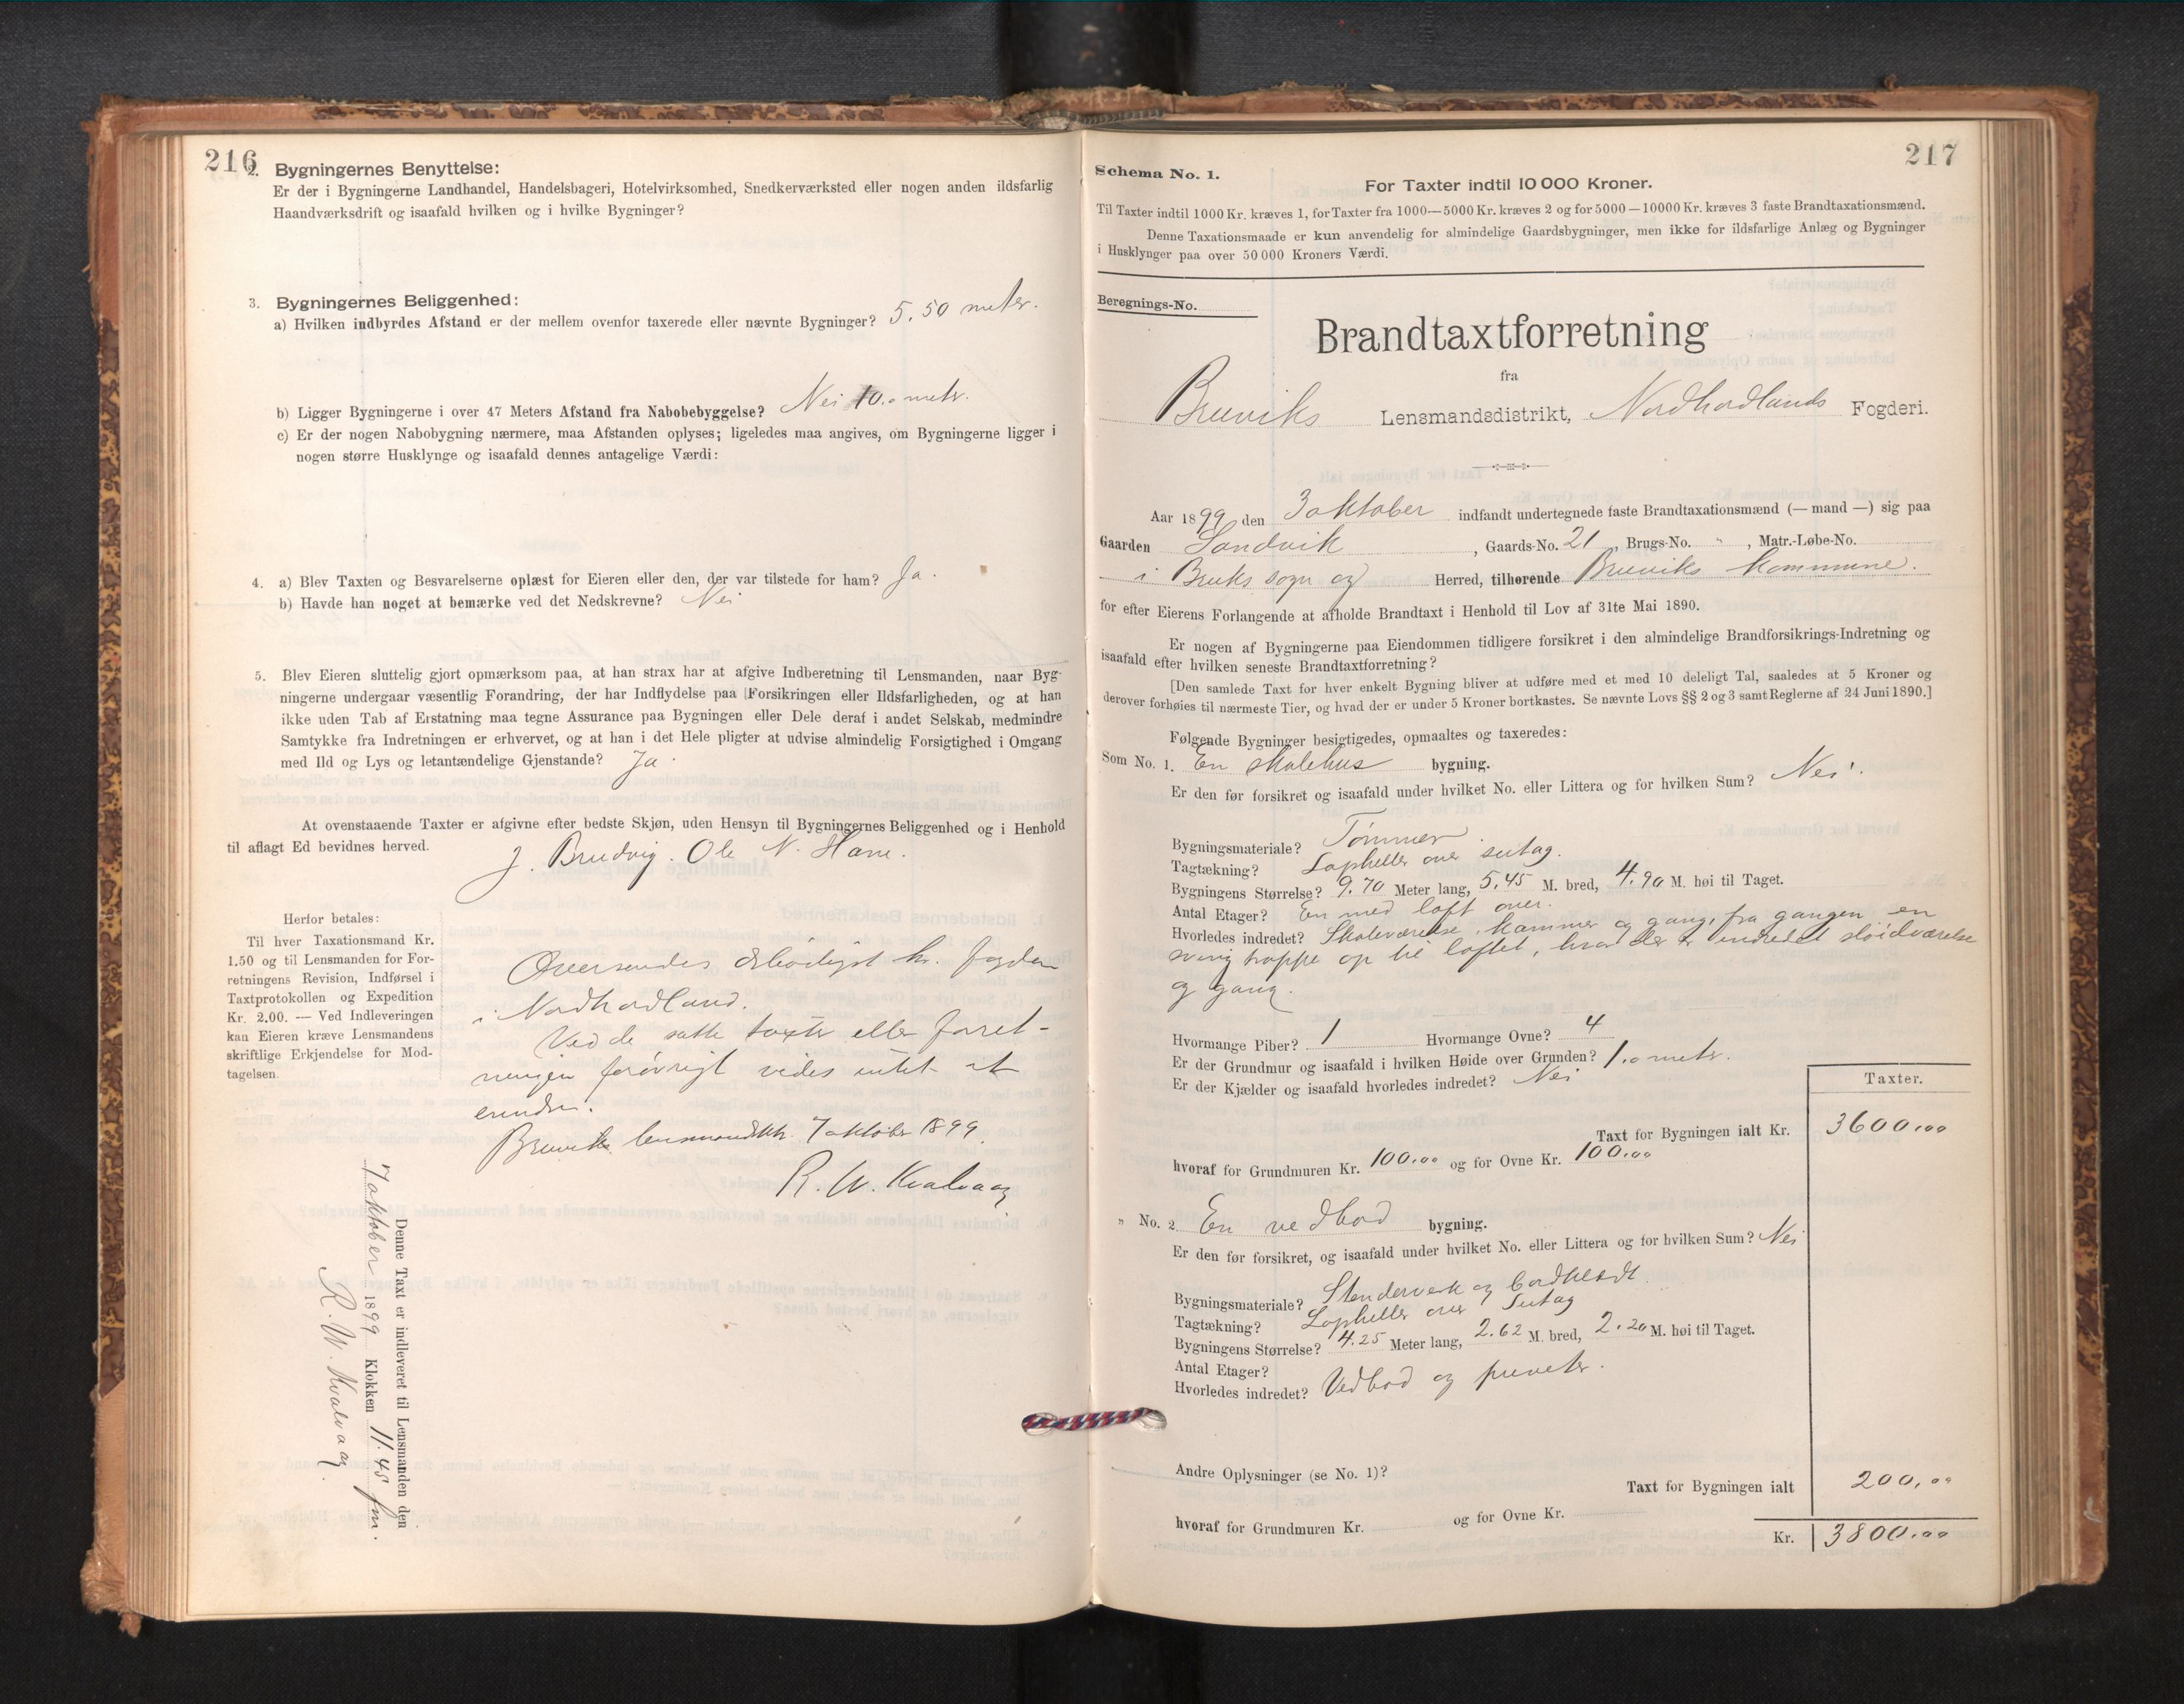 216
2. Bygningernes Benyttelse:
Er der i Bygningerne Landhandel, Handelsbageri, Hotelvirksomhed, Snedkerværksted eller nogen anden ildsfarlig
Haandværksdrift og isaafald hvilken og i hvilke Bygninger?
3. Bygningernes Beliggenhed:
a) Hvilken indbyrdes Afstand er der mellem ovenfor taxerede eller nævnte Bygninger? 5.50 meter.
b) Ligger Bygningerne i over 47 Meters Afstand fra Nabobebyggelse? Nei 10.0 metr.
c) Er der nogen Nabobygning nærmere, maa Afstanden oplyses; ligeledes maa angives, om Bygningerne ligger i
nogen større Husklynge og isaafald dennes antagelige Værdi:
4. a) Blev Taxten og Besvarelserne oplæst for Eieren eller den, der var tilstede for ham? Ja.
b) Havde han noget at bemærke ved det Nedskrevne? Nei
5. Blev Eieren sluttelig gjort opmærksom paa, at han strax har at afgive Indberetning til Lensmanden, naar Byg-
ningerne undergaar væsentlig Forandring, der har Indflydelse paa Forsikringen eller Ildsfarligheden, og at han
ikke uden Tab af Erstatning maa tegne Assurance paa Bygningen eller Dele deraf i andet Selskab, medmindre
Samtykke fra Indretningen er erhvervet, og at han i det Hele pligter at udvise almindelig Forsigtighed i Omgang
med Ild og Lys og letantændelige Gjenstande? Ja.
At ovenstaaende Taxter er afgivne efter bedste Skjøn, uden Hensyn til Bygningernes Beliggenhed og i Henhold
til aflagt Ed bevidnes herved.
J. Brudvig. Ole N.
Herfor betales:
Til hver Taxationsmand Kr.
1.50 og til Lensmanden for For-
retningens Revision, Indførsel i
Taxtprotokollen og Expedition
Kr. 2.00. — Ved Indleveringen
kan Eieren kræve Lensmandens
skriftlige Erkjendelse for Mod-
tagelsen.
Oversendes ærbødigst hr. fogden
i Nordhordland.
Ved de satte taxter eller forret-
ningen forøvrigt vides intet at
erindre.
Bruviks lensmandskt. 7 oktober 1899.
R. W. Kvalvaag
Denne Taxt er indleveret til Lensmanden den
7 oktober 1899 Klokken 11.45 fm.
R. W. Kvalvaag.
217
Schema No. 1.
For Taxter indtil 10 000 Kroner.
Til Taxter indtil 1000 Kr. kræves 1, for Taxter fra 1000—5000 Kr. kræves 2 og for 5000—10000 Kr. kræves 3 faste Brandtaxationsmænd.
Denne Taxationsmaade er kun anvendelig for almindelige Gaardsbygninger, men ikke for ildsfarlige Anlæg og Bygninger
i Husklynger paa over 50 000 Kroners Værdi.
Beregnings-No.
Brandtaxtforretning
fra
Bruviks Lensmandsdistrikt, Nordhordlands Fogderi.
Aar 1899 den 3 oktober indfandt undertegnede faste Brandtaxationsmænd (— mand —) sig paa
Gaarden Sandvik, Gaards-No. 21, Brugs-No. " , Matr.-Løbe-No.
i Bruks sogn og Herred, tilhørende Bruviks kommune.
for efter Eierens Forlangende at afholde Brandtaxt i Henhold til Lov af 31te Mai 1890.
Er nogen af Bygningerne paa Eiendommen tidligere forsikret i den almindelige Brandforsikrings-Indretning og
isaafald efter hvilken seneste Brandtaxtforretning?
[Den samlede Taxt for hver enkelt Bygning bliver at udføre med et med 10 deleligt Tal, saaledes at 5 Kroner og
derover forhøies til nærmeste Tier, og hvad der er under 5 Kroner bortkastes. Se nævnte Lovs §§ 2 og 3 samt Reglerne af 24 Juni 1890.]
Følgende Bygninger besigtigedes, opmaaltes og taxeredes:
Som No. 1. En skolehus bygning.
Er den før forsikret og isaafald under hvilket No. eller Littera og for hvilken Sum? Nei.
Bygningsmateriale? Tømmer
Tagtækning? Lapheller over sutag.
Bygningens Størrelse? 9.70 Meter lang, 5.45 M. bred, 4.90 M. høi til Taget.
Antal Etager? En med loft over.
Hvorledes indredet? Skoleværelse, kammer og gang, fra gangen en
sving trappe op til loftet, hvor der er indredet sløidværelse
og gang.
Hvormange Piber? 1 Hvormange Ovne? 4
Er der Grundmur og isaafald i hvilken Høide over Grunden? 1.0 metr.
Er der Kjælder og isaafald hvorledes indredet? Nei
Taxter.
Taxt for Bygningen ialt Kr. 3600.00
hvoraf for Grundmuren Kr. 100.00 og for Ovne Kr. 100.00
" No. 2 En vedbod bygning.
Er den før forsikret, og isaafald under hvilket No. eller Littera og for hvilken Sum? Nei
Bygningsmateriale? Stenderverk og bordklædt.
Tagtækning? Lapheller over Sutag
Bygningens Størrelse? 4.25 Meter lang, 2.62 M. bred, 2.20 M. høi til Taget.
Antal Etager?
Hvorledes indredet? Vedbod og priveter.
Andre Oplysninger (se No. 1)?
Taxt for Bygningen ialt 200.00
hvoraf for Grundmuren Kr. og for Ovne Kr.
Kr. 3800.00